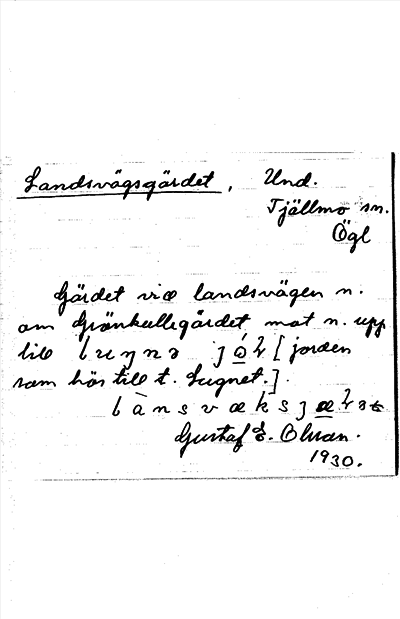 Landsvägsgärdet, Und.
Tjällmo sn.
Ögl
Gärdet vid landsvägen n.
om Grönkullegärdet mot n. upp
till [jorden
som hör till t. Lugnet.].
Gustaf E. Olsson.
1930.